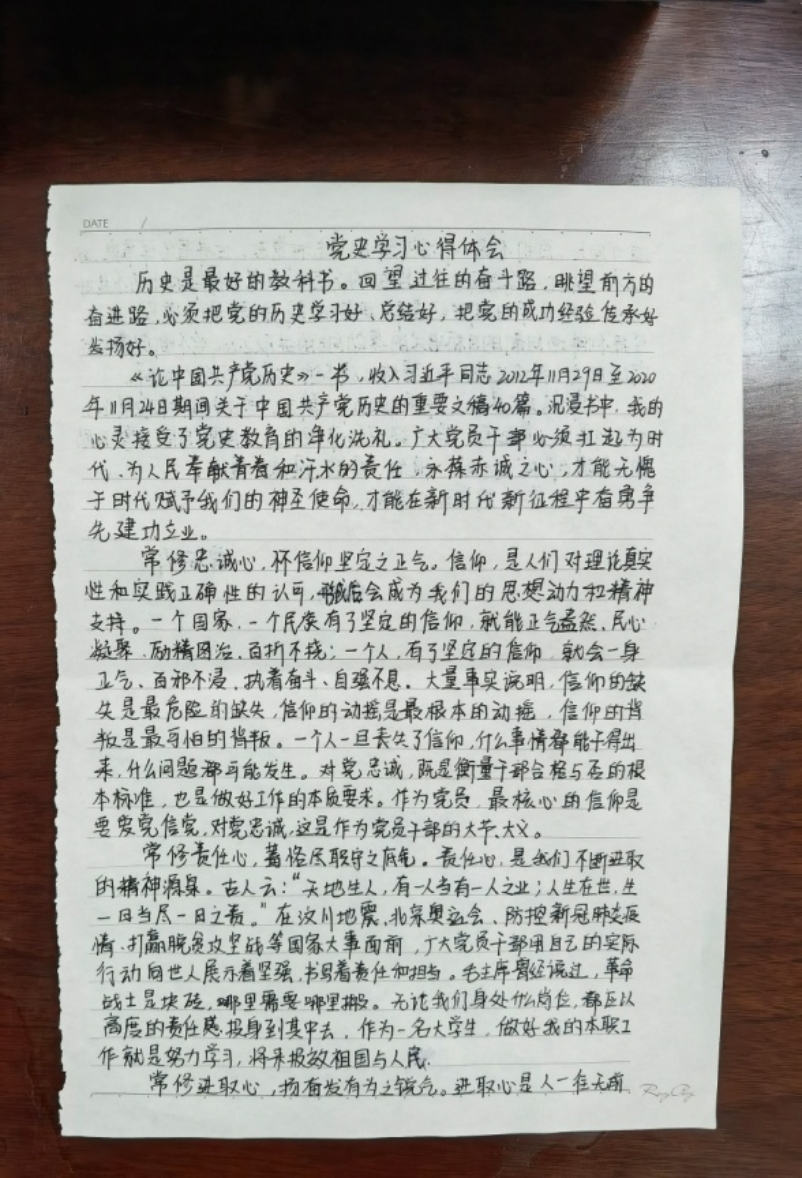 DATE /
党史学习心得体会
历史是最好的教科书。回望过往的奋斗路，眺望前方的
奋进路，必须把党的历史学习好、总结好，把党的成功经验传承好
发扬好。
《论中国共产党历史》一书，收入习近平同志2012年11月29日至2020
年11月24日期间关于中国共产党历史的重要文稿40篇。沉浸书中，我的
心灵接受了党史教育的净化洗礼。广大党员干部必须扛起为时
代、为人民奉献青春和汗水的责任，永葆赤诚之心，才能无愧
于时代赋予我们的神圣使命，才能在新时代新征程中奋勇争
先、建功立业。
常修忠诚心，怀信仰坚定之正气。信仰，是人们对理论真实
性和实践正确性的认可，最后会成为我们的思想动力和精神
支持。一个国家，一个民族有了坚定的信仰，就能正气盎然、民心
凝聚、励精图治、百折不挠；一个人，有了坚定的信仰，就会一身
正气、百邪不浸、执着奋斗、自强不息。大量事实说明，信仰的缺
失是最危险的缺失，信仰的动摇是最根本的动摇，信仰的背
叛是最可怕的背叛。一个人一旦丧失了信仰，什么事情都能干得出
来，什么问题都可能发生。对党忠诚，既是衡量干部合格与否的根
本标准，也是做好工作的本质要求。作为党员，最核心的信仰是
要爱党信党，对党忠诚，这是作为党员干部的大节、大义。
常修责任心，蓄恪尽职守之底气。责任心，是我们不断进取
的精神源泉。古人云：“天地生人，有一人当有一人之业；人生在世，生
一日当尽一日之责。”在汶川地震、北京奥运会、防控新冠肺炎疫
情、打赢脱贫攻坚战等国家大事面前，广大党员干部用自己的实际
行动向世人展示着坚强，书写着责任和担当。毛主席曾经说过，革命
战士是块砖，哪里需要哪里搬。无论我们身处什么岗位，都应以
高度的责任感投身到其中去，作为一名大学生，做好我的本职工
作就是努力学习，将来报效祖国与人民.
常修进取心，扬奋发有为之锐气。进取心是人一往无前